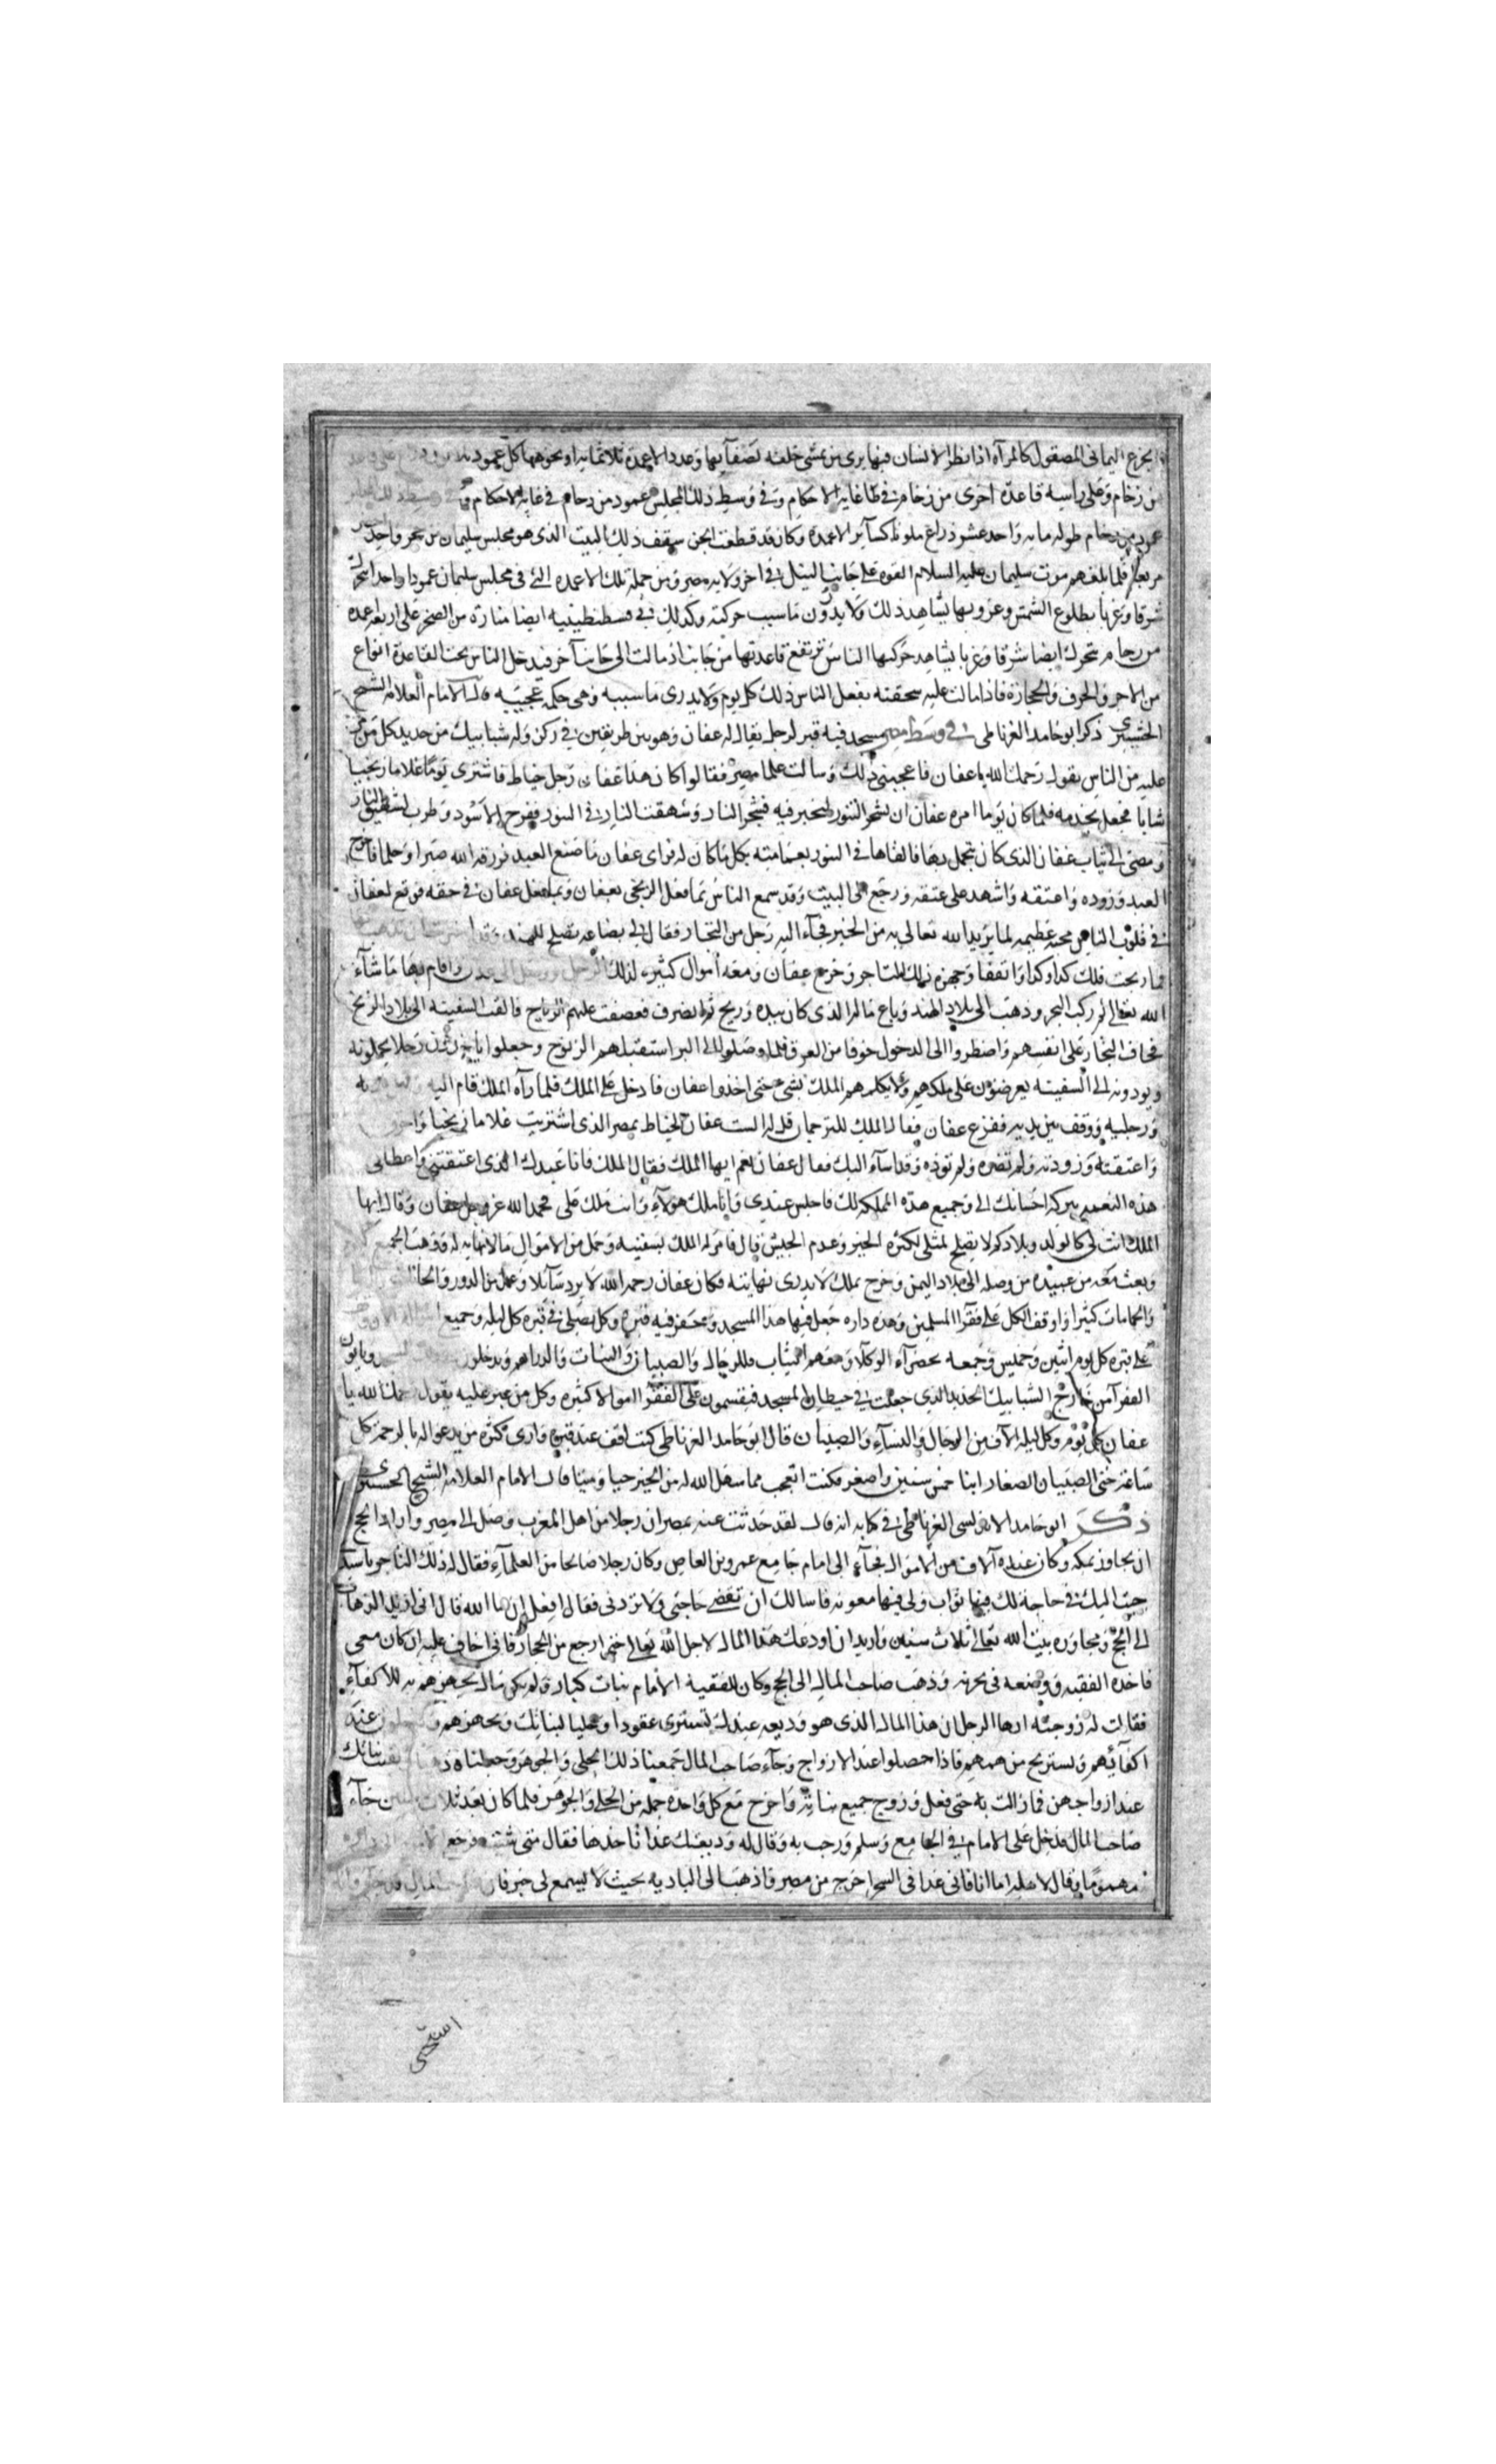 الجزع اليمانى المصقول كالمرآة اذا نظر الانسان فيها يرى من يمشى خلفه لصفآيها وعدد الاعمدة ثلاثمايه او نحوهها كل عمود
من رخام وعلى راسه قاعدة اخرى من رخام فى غاية الاحكام وفى وسط ذلك المجلس عمود من رخام فى غاية الاحكام
عمود من رخام طوله مايه واحد عشر ذراع ملونا كسآير الاعمدة وكان قد قطعت الجن سقف ذلك البيت الذى هو مجلس سليمان من حجر واحد
مربعا فلما بلغهم موت سليمان عليه السلام القوه على جانب النيل فى اخر ولاية مصر ومن جملة تلك الاعمدة التى فى مجلس سليمان عمودا واحدا
شرقا وغربا بطلوع الشمس وغروبها يشاهد ذلك ولا يدرون ما سبب حركته وكذلك فى قسطنطينيه ايضا منارة من الصخر على اربعة اعمدة
من رخام تتحرك ايضا شرقا وغربا يشاهد حركتها الناس ترتفع قاعدتها من جانب اذ مالت الى جانب آخر فيدخل الناس تحت القاعدة انواع
من الاجر والخزف والحجارة فاذا مالت عليه سحقته يفعل الناس ذلك كل يوم ولا يدرى ما سببه وهى حكمه عجيبه قال الامام العلامه الشيخ
ذكر ابو حامد الغرناطى فى وسط مصر مسجد فيه قبر لرجل يقال له عفان وهو بين طريقين فى ركن وله شبابيك من حديد كل من
عليه من الناس يقول رحمك الله يا عفان فاعجبنى ذلك وسالت علما مصر فقالوا كان هذا عفان رجل خياط فاشترى يوما غلاما زنجيا
شابا فجعل يخدمه فلما كان يوما امره عفان ان يشجر التنور ليخبز فيه فشجر النار وشهقت النار فى التنور ففرح الاسود وطرب
ومضى الى ثياب عفان الذى كان يتجمل بها فالقاها فى التنور بعمامته بكل ما كان له فراى عفان ما صنع العبد فرزقه الله صبرا وحلما فاخرج
العبد وزوده واعتقه واشهد على عتقه ورجع الى البيت وقد سمع الناس بما فعل الزنجى بعفان وبما فعل عفان فى حقه فوقع لعفان
فى قلوب الناس محبة عظيمه لما يريد الله تعالى به من الخير فجآء اليه رجل من التجار فقال لى بضاعه تصلح للهند
فما ربحت فلك كذا وكذا واتفقا وجهزه ذلك التاجر وخرج عفان ومعه أموال كثيره لذلك الرجل واقام بها ما شآء
الله تعالى ثم ركب البحر وذهب الى بلاد الهند وباع مالم الذى كان بيده وربح ثم انصرف فعصفت عليهم الرياح فالقت السفينه الى بلاد الزنج
فخاف التجار على انفسهم واضطروا الى الدخول خوفا من الغرق فلما وصلوا الى البر استقبلهم الزنوج وجعلوا ياخذون رجلا يحملونه
ويردونه الى السفينه يعرضون على ملكهم ولا يكلمهم الملك بشى حتى اخذوا عفان فادخل على الملك فلما رآه الملك قام اليه
ورجليه ووقف بين يديه ففزع عفان فقال الملك للترجمان قل له الست عفان الخياط بمصر الذى اشتريت غلاما زنجيا
واعتقته وزودته ولم تضره ولم توذه وقد اسآء اليك فقال عفان نعم ايها الملك فقال الملك فانا عبدك الذى اعتقتنى واعطانى
هذه النعمه ببركه احسانك الى وجميع هذه المملكه لك فاجلس عندى وانا ملك هولآء وانت ملك على فحمد الله عز وجل عفان وقال ايها
الملك انت لى كالولد وبلادكم لا تصلح لمثلى لكثرة الحر وعدم الجيش قال فامر له الملك بسفينه وحمل من الاموال ما لا نهايه له
وبعث معه من عبيده من وصله الى بلاد اليمن وخرج بملك لا يدرى نهايته فكان عفان رحمه الله لا يرد سآئلا وعمل من الدور
والحمامات كثيرا واوقف الكل على فقرا المسلمين وهذه داره جعل فيها هذا المسجد وحفر فيه قبره وكل يصلى فى قبره كل ليله وجميع
على قبره كل يوم اثنين وخميس وجمعه يحضرآء الوكلآ ومعهم الثياب للرجال والصبيان والبنات والدراهم ويدخلون وياتون
الفقرآ من خارج الشبابيك الحديد الذى جعلت فى حيطان المسجد فيقسمون على الفقرآ اموالا كثيره وكل من عبر عليه يقول رحمك الله يا
عفان كل يوم وكل ليله الآف من الرجال والنسآء والصبيان قال ابو حامد الغرناطى كنت اقف عند قبره وارى كثرة من يدعو له بالرحمة كل
ساعة حتى الصبيان الصغار ابنا خمس سنين واصغر فكنت اتعجب مما سهل الله له من الخير حيا وميتا قال الامام العلامه الشيخ
ذكر ابو حامد الاندلسى الغرناطى فى كتابه انه قال لقد حدثت عنه بمصر ان رجلا من اهل المغرب وصل الى مصر واراد الحج
ان يجاوز بمكه وكان عنده آلاف من الاموال فجآء الى امام جامع عمرو بن العاص وكان رجلا صالحا من العلمآء فقال له ذلك التاجر يا سيد
جيت اليك فى حاجة لك فيها ثواب ولى فيها معونه فاسالك ان تقضى حاجتى ولا تردنى فقال افعل ان شا الله قال انى اريد الذهاب
الى الحج ومجاوره بيت الله تعالى ثلاث سنين واريد ان اودعك هذا المال لاجل الله تعالى حتى ارجع من الحجاز فانى اخاف عليه ان كان معى
فاخذه الفقيه ووضعه فى خزينه وذهب صاحب المال الى الحج وكان للفقيه الامام بنات كبار ولم يكن مال يجهزهم به للاكفآء
فقالت له زوجته ايها الرجل ان هذا المال الذى هو وديعه عندك تشترى عقودا وحليا لبناتك وتجهزهم عند
اكفآئهم وتستريح من همهم فاذا حصلوا عند الازواج وجآء صاحب المال جمعنا ذلك الحلى والجوهر وجعلناه بناتك
عند ازواجهن فما زالت به حتى فعل وزوج جميع بناته واخرج مع كل واحدة جمله من الحلى والجوهر فلما كان بعد ثلاث سنين جآء
صاحب المال فدخل على الامام فى الجامع وسلم ورحب به وقال له وديعتك غدا تاخذها فقال متى شئت فرجع
مهموما وقال لاهله اما انا فانى غدا فى السحر اخرج من مصر فاذهب الى الباديه بحيث لا يسمع لى خبر